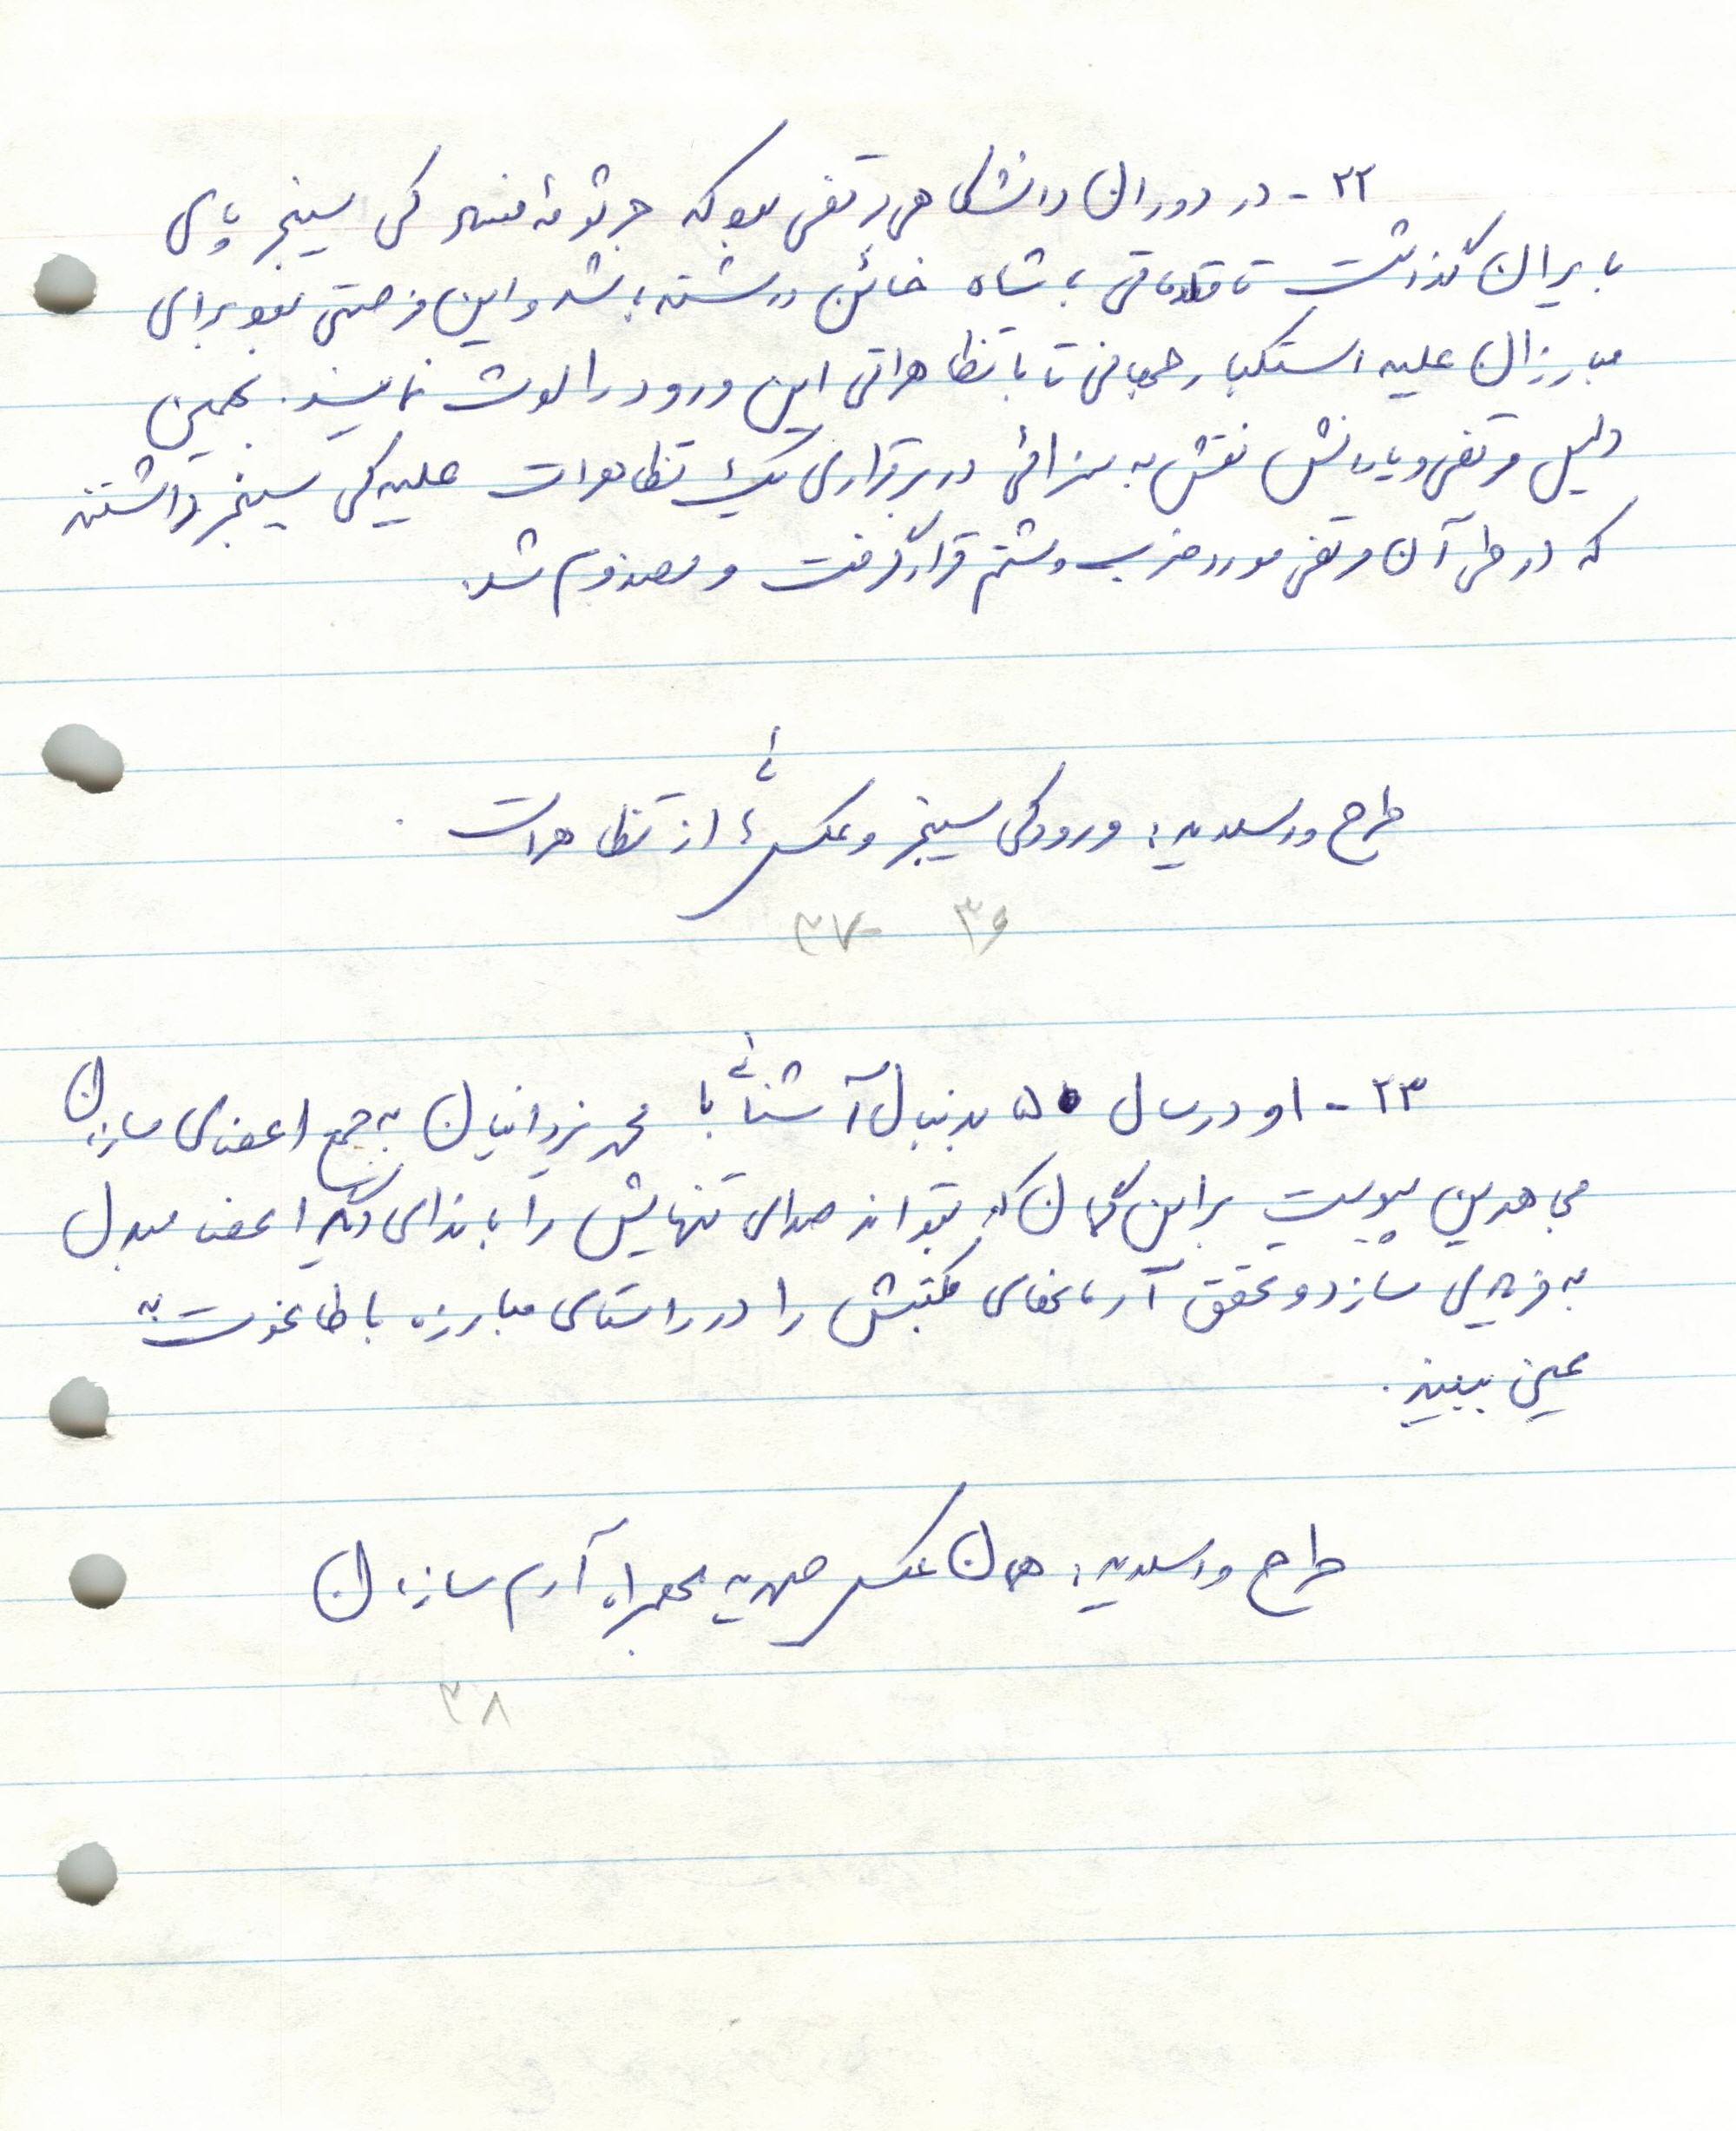 ۲۲ - در دوران دانشگاهی مرتضی بود که جرثومه فساد کی سینجر پای
به ایران گذاشت تا ملاقاتی با شاه خائن داشته باشد و این فرصتی بود برای
مبارزان علیه استکبار جهانی تا با تظاهراتی این ورود را لوث نمایند. بهمین
دلیل مرتضی و یارانش نقش به سزائی در برقراری یک تظاهرات علیه کی سینجر داشتند
که در طی آن مرتضی مورد ضرب و شتم قرار گرفت و مصدوم شد.
طرح و اسلاید: ورود کی سینجر و عکسهائی از تظاهرات
۳۶ ۳۷
۲۳ - او در سال ۵۰ بدنبال آشنائی با محمد یزدانیان به جمع اعضای سازمان
مجاهدین پیوست بر این گمان که بتواند صدای تنهایش را با ندای دیگر اعضا مبدل
به فریادی سازد و تحقق آرمانهای مکتبش را در راستای مبارزه با طاغوت به
عین ببیند.
طرح و اسلاید: همان عکس مهدیه بهمراه آرم سازمان
۳۸